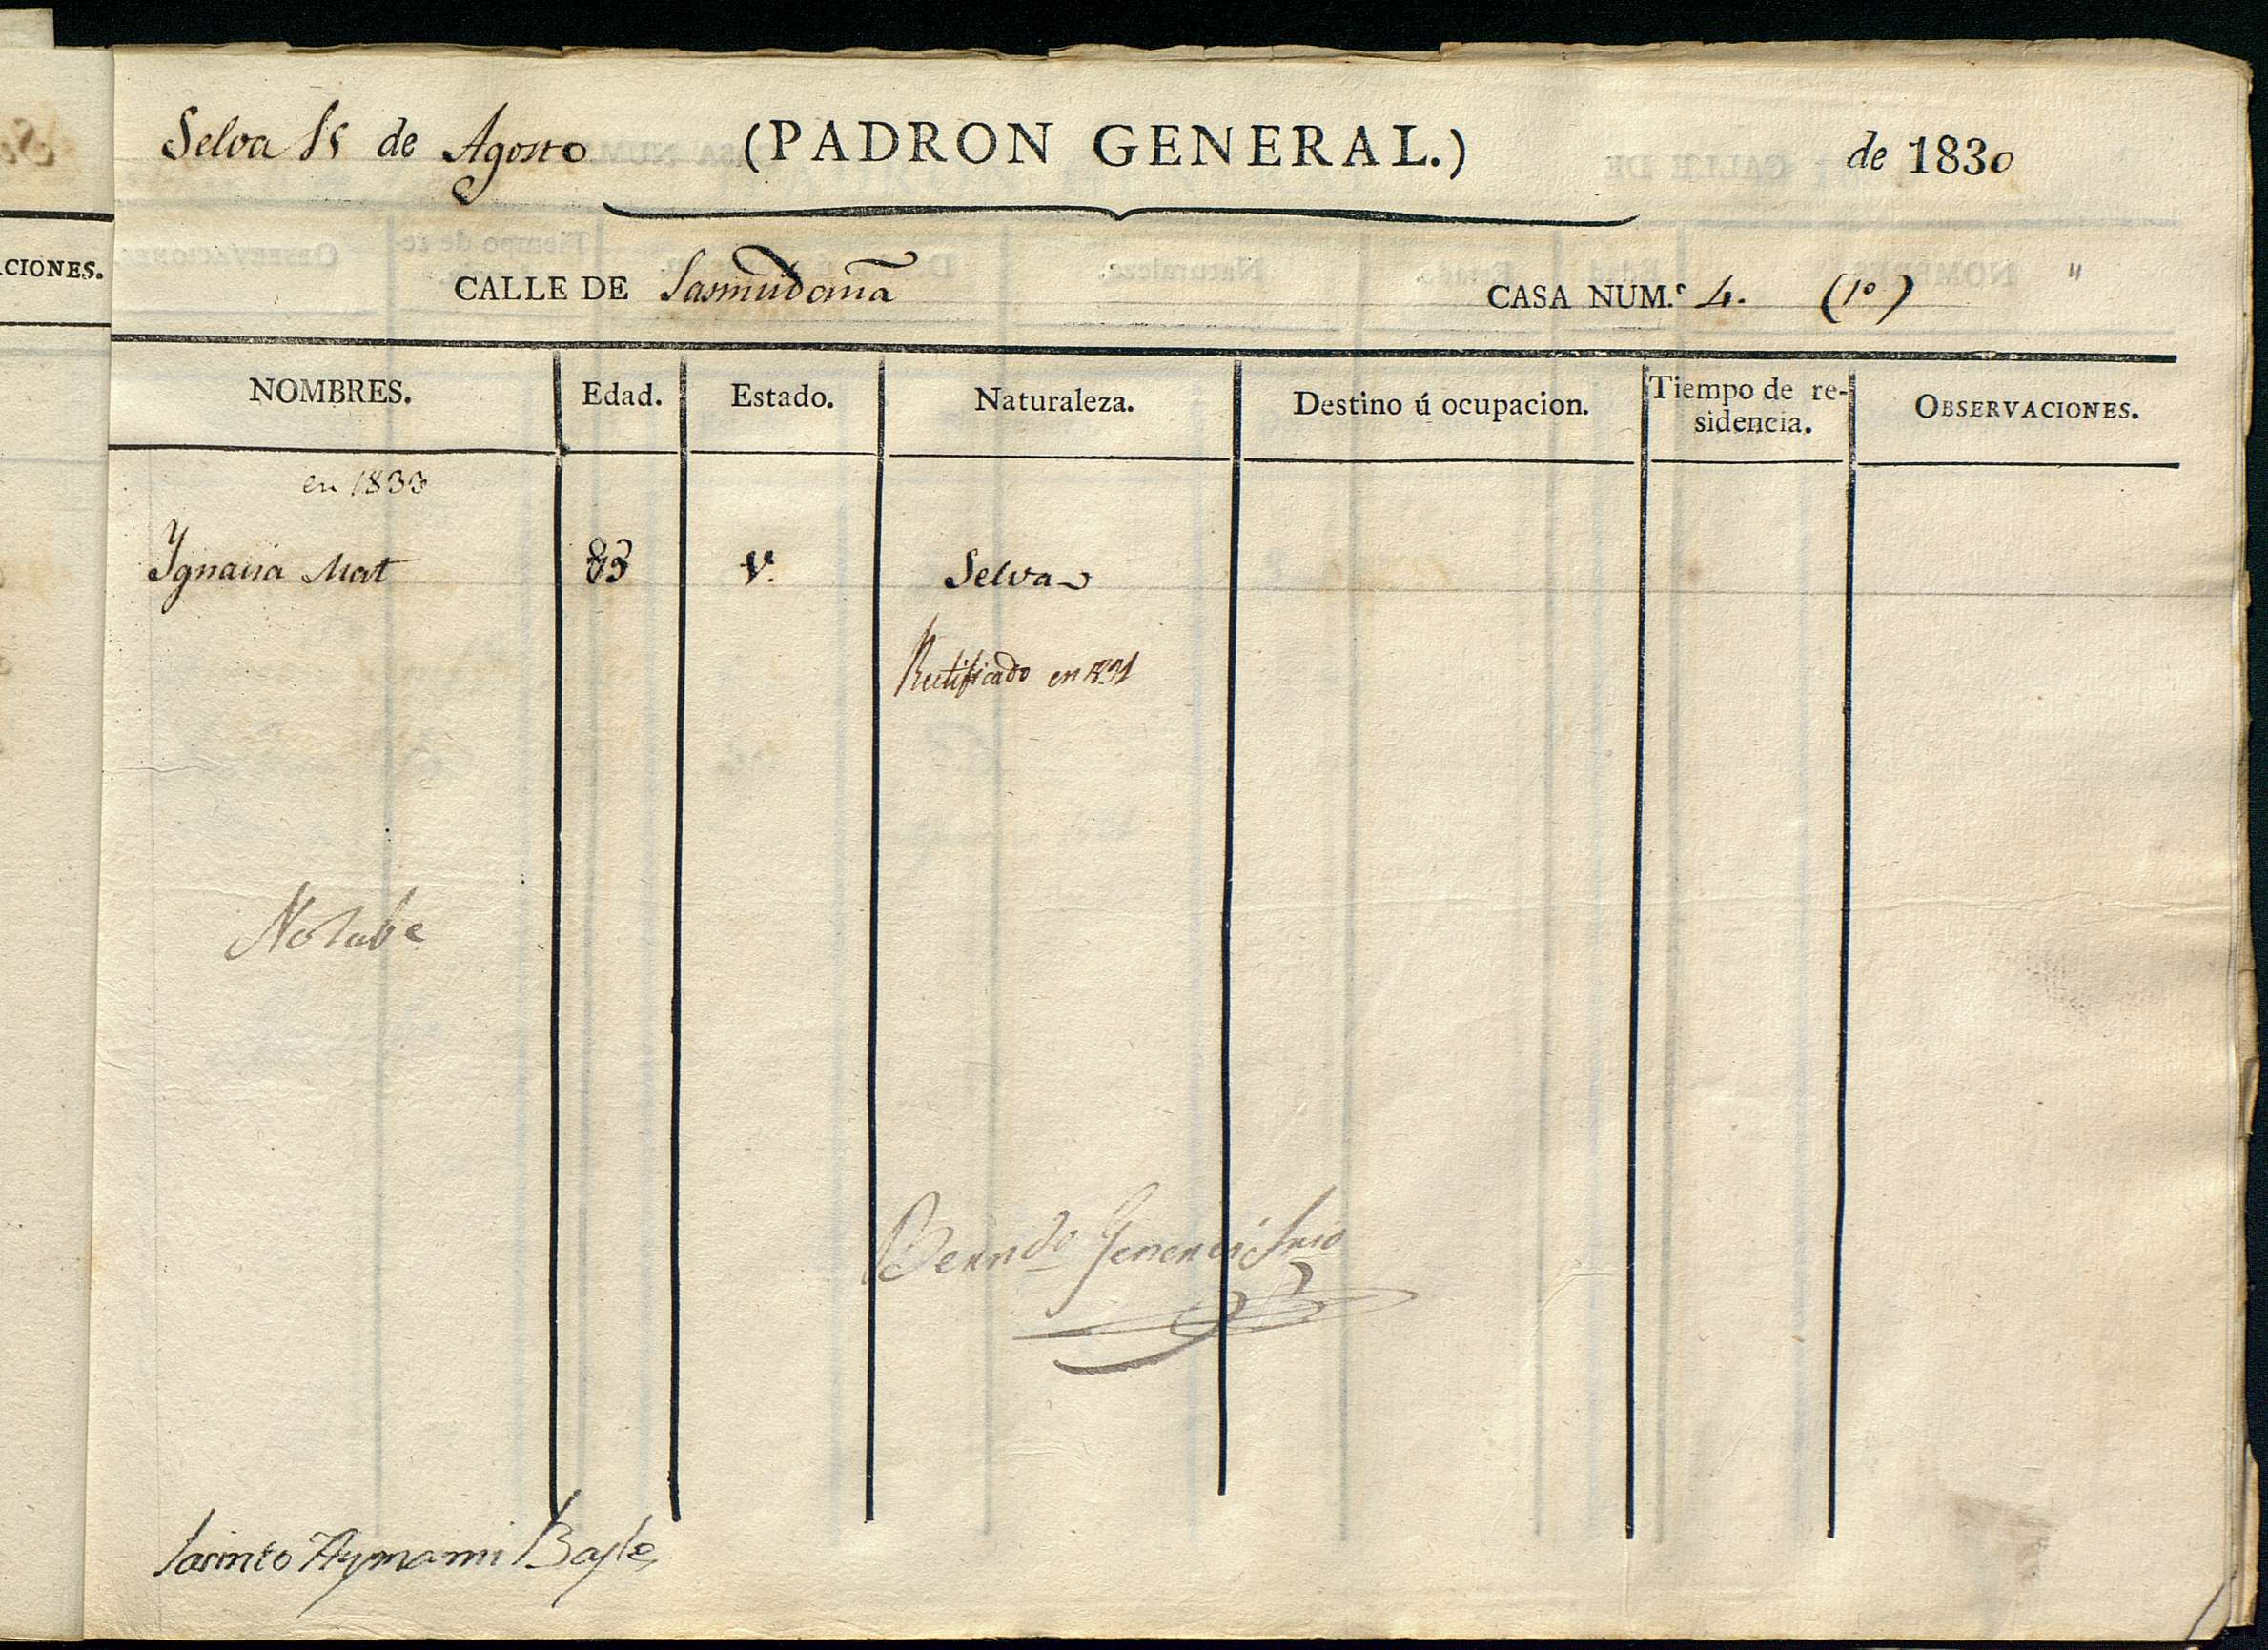 Selva 15 de Agosto (PADRON GENERAL.) de 1830
CALLE DE CASA NÚM.º 4. (1º) "
CIONES.
NOMBRES. Edad. Estado. Naturaleza. Destino ú ocupacion. Tiempo de re-
sidencia. OBSERVACIONES.
en 1833
Ygnacia Mat 83 V. Selva
Rectificado en 1831
Berndo
Jacinto Aymami Bayle